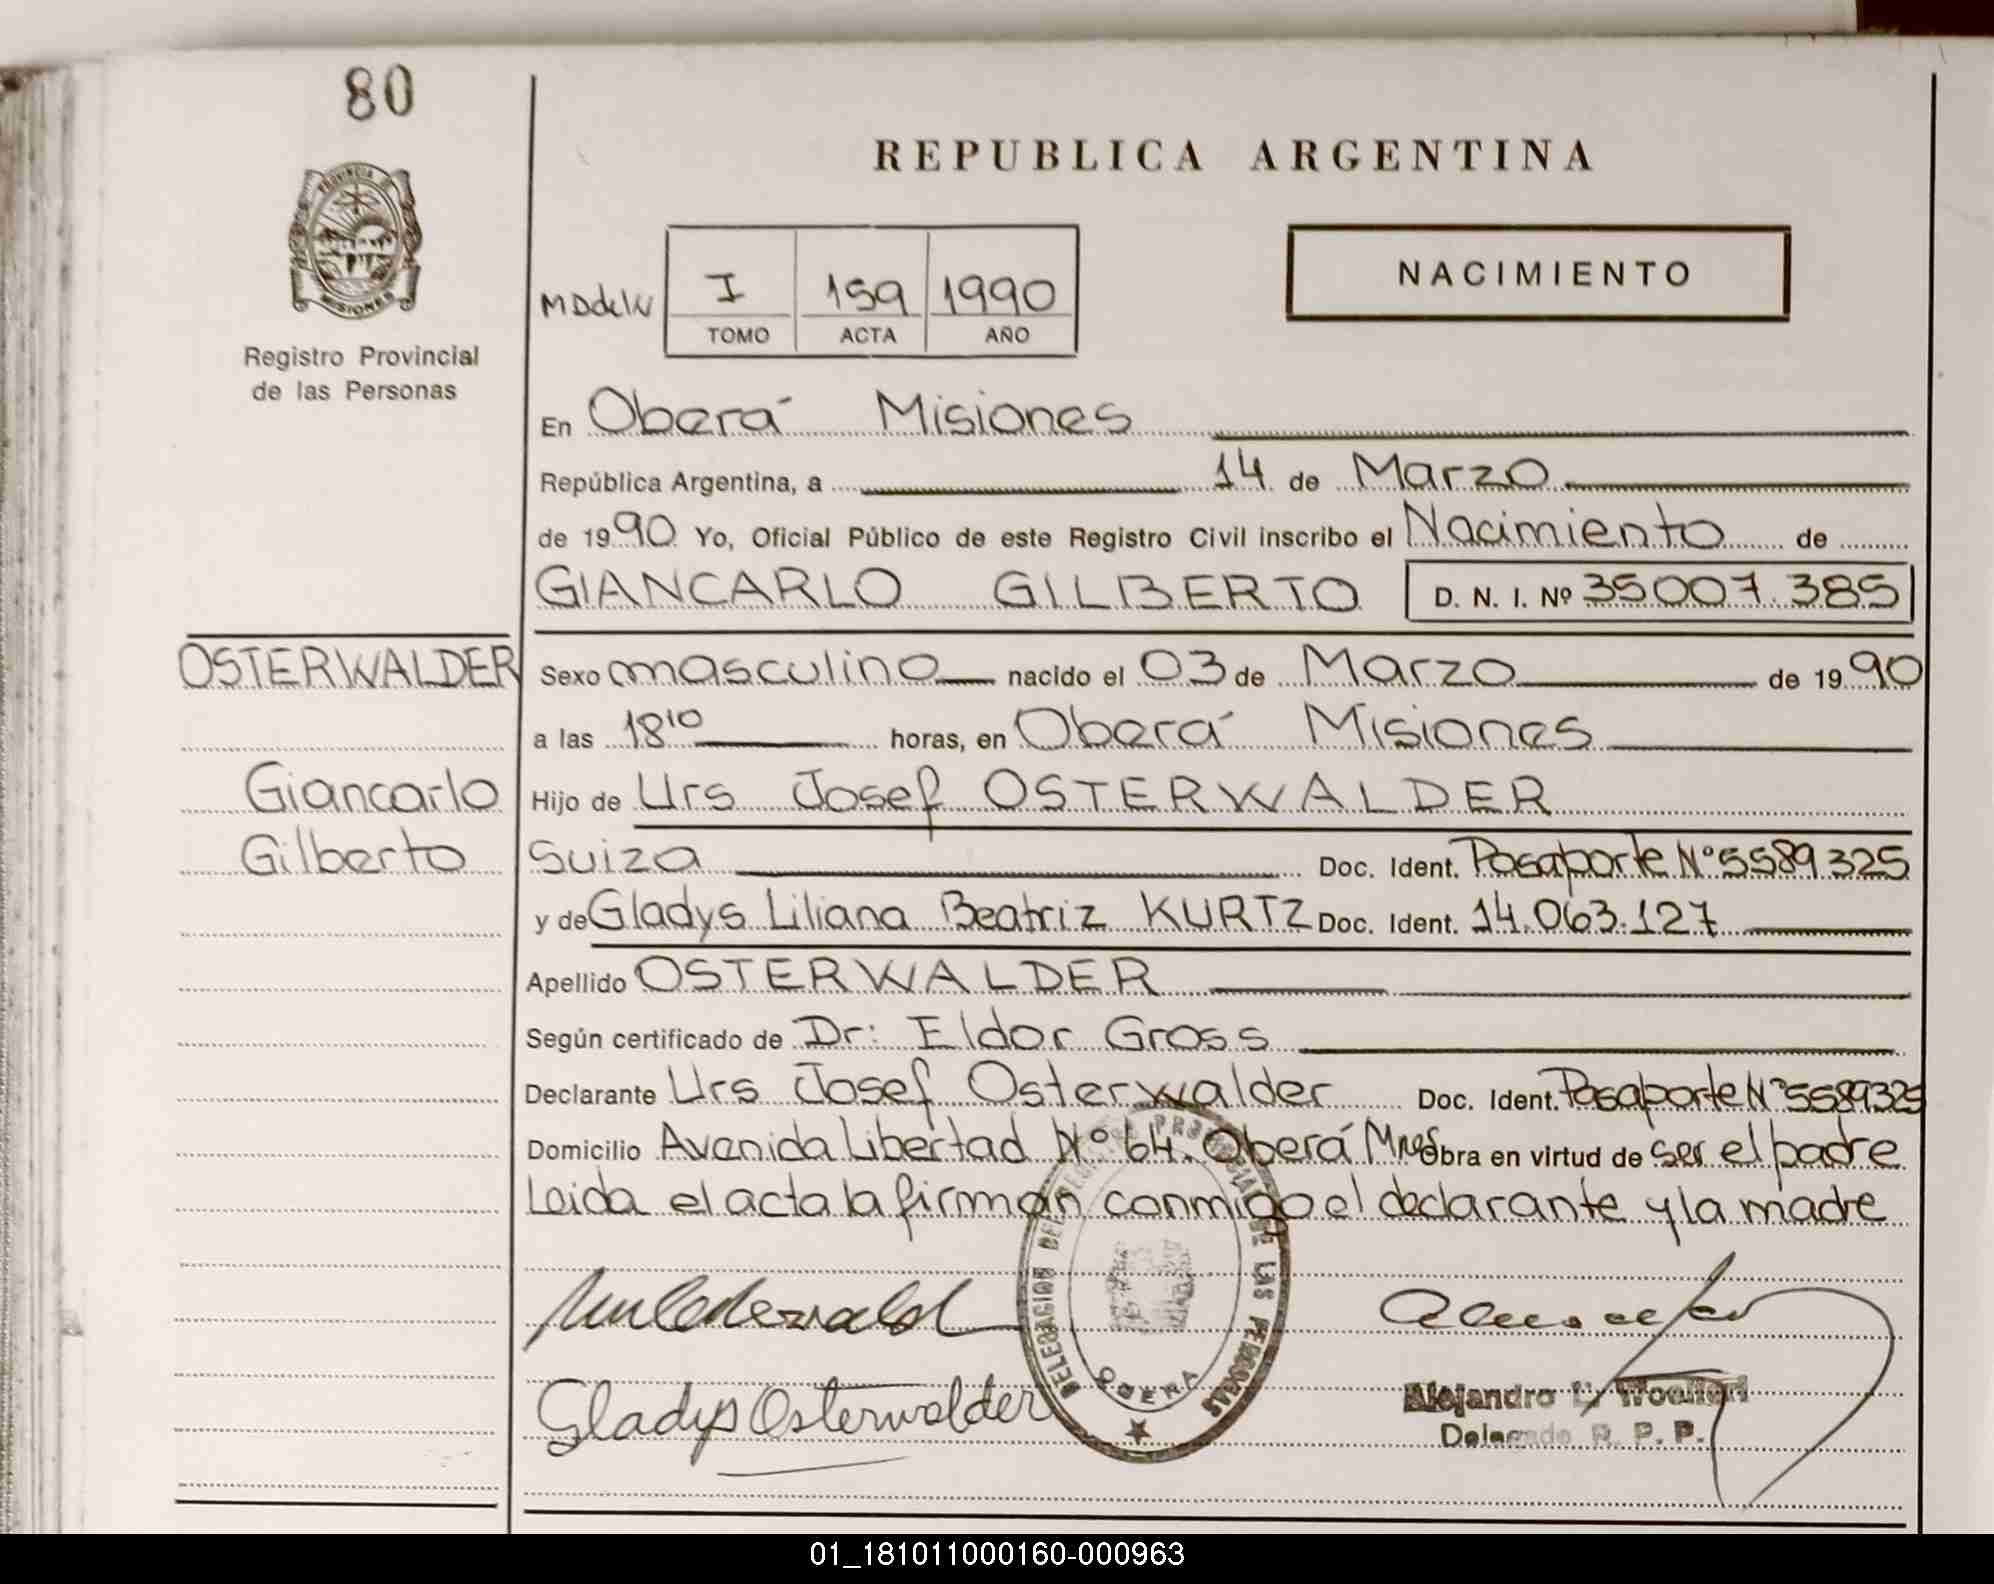 80
REPUBLICA ARGENTINA
PROVINCIA DE
MISIONES
Registro Provincial
de las Personas
NACIMIENTO
I 159 1990
TOMO ACTA AÑO
En Oberá Misiones
República Argentina, a 14 de Marzo
de 1990 Yo, Oficial Público de este Registro Civil inscribo el Nacimiento de
GIANCARLO GILBERTO D. N. I. Nº 35007.385
OSTERWALDER
Giancarlo
Gilberto
Sexo masculino nacido el 03 de Marzo de 1990
a las 18¹⁰ horas, en Oberá Misiones
Hijo de Urs Josef OSTERWALDER
Suiza Doc. Ident. Pasaporte N° 5589325
y de Gladys Liliana Beatriz KURTZ Doc. Ident. 14.063.127
Apellido OSTERWALDER
Según certificado de Dr: Eldor Gross
Declarante Urs Josef Osterwalder Doc. Ident. Pasaporte N° 5589325
Domicilio Avenida Libertad N° 64. Oberá Mnes Obra en virtud de ser el padre
Leida el acta la firman conmigo el declarante y la madre
DELEGACION DEL REGISTRO PROVINCIAL DE LAS PERSONAS
OBERA
Gladys Osterwalder
Alejandro
Delegado R. P. P.
01_181011000160-000963